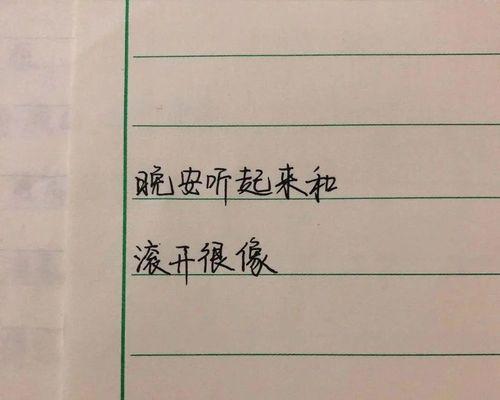 晚安听起来和
滚开很像